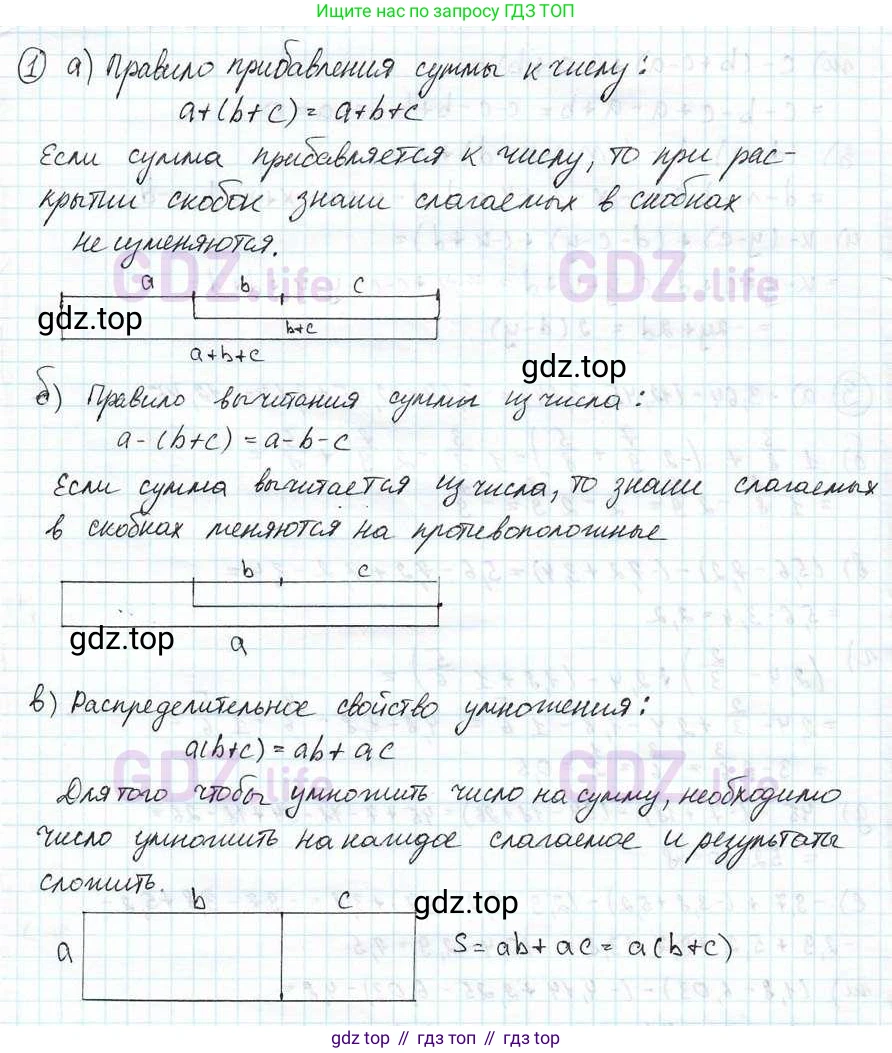 Ищите нас по запросу ГДЗ ТОП
① а) Правило прибавления суммы к числу:
a+(b+c) = a+b+c
Если сумма прибавляется к числу, то при рас-
крытии скобок знаки слагаемых в скобках
не изменяются.
GDZ.life GDZ.life
a b c
gdz.top
b+c
a+b+c
gdz.top
б) Правило вычитания суммы из числа:
a-(b+c) = a-b-c
Если сумма вычитается из числа, то знаки слагаемых
в скобках меняются на противоположные
b c
gdz.top
a
в) Распределительное свойство умножения:
a(b+c) = ab+ac
GDZ.life GDZ.life
Для того чтобы умножить число на сумму, необходимо
число умножить на каждое слагаемое и результаты
сложить.
b c
gdz.top
a
S = ab+ac = a(b+c)
gdz top // гдз топ // gdz.top